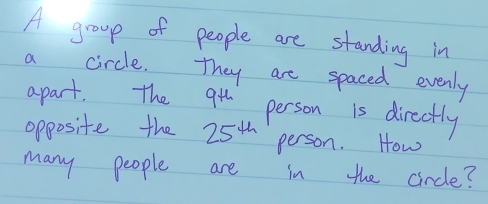 A group of people are standing in
a circle. They are spaced evenly
apart. The 9th person is directly
opposite the 25th person. How
many people are in the circle?